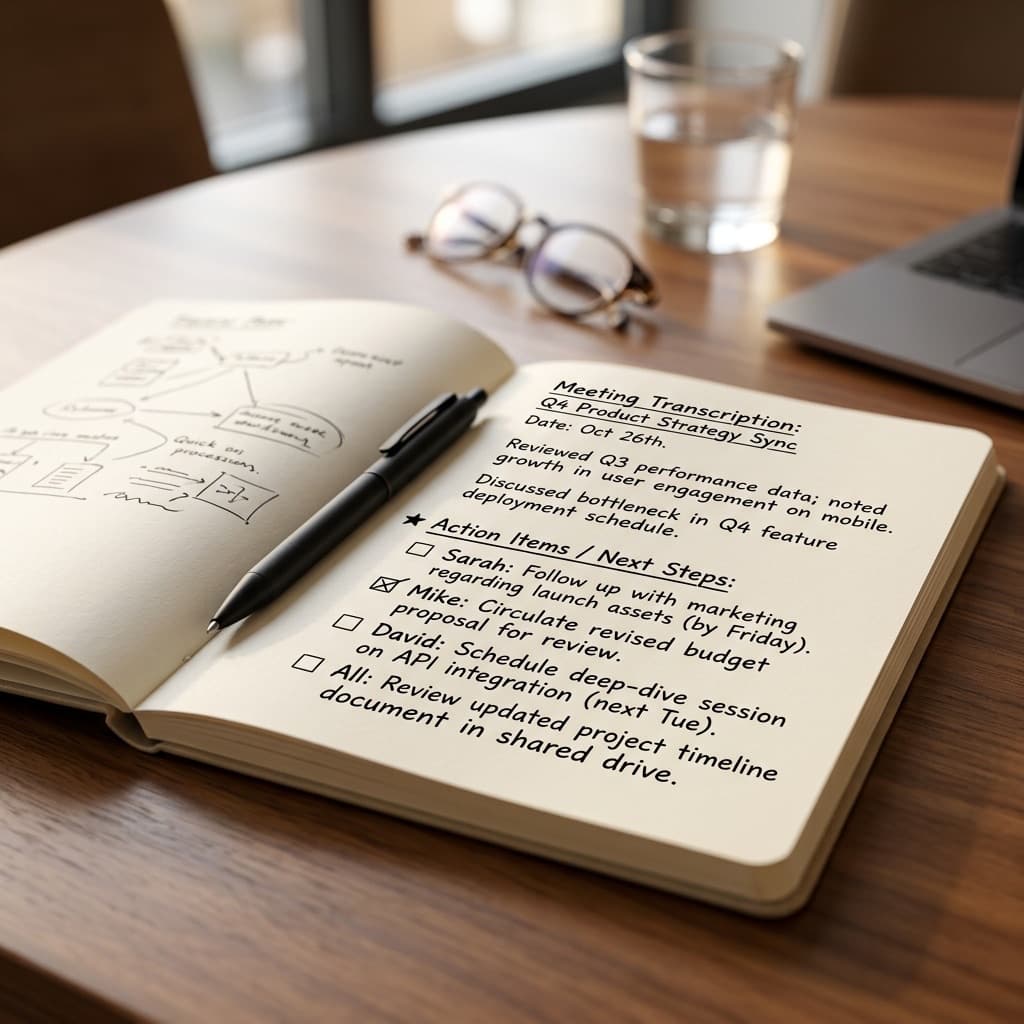 Quick on
processen.
Meeting Transcription:
Q4 Product Strategy Sync
Date: Oct 26th.
Reviewed Q3 performance data; noted
growth in user engagement on mobile.
Discussed bottleneck in Q4 feature
deployment schedule.
★ Action Items / Next Steps:
☐ Sarah: Follow up with marketing
regarding launch assets (by Friday).
☒ Mike: Circulate revised budget
proposal for review.
☐ David: Schedule deep-dive session
on API integration (next Tue).
☐ All: Review updated project timeline
document in shared drive.